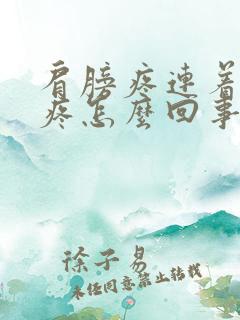 肩膀疼連着
疼怎麼回事
徐子易
未经同意禁止转载